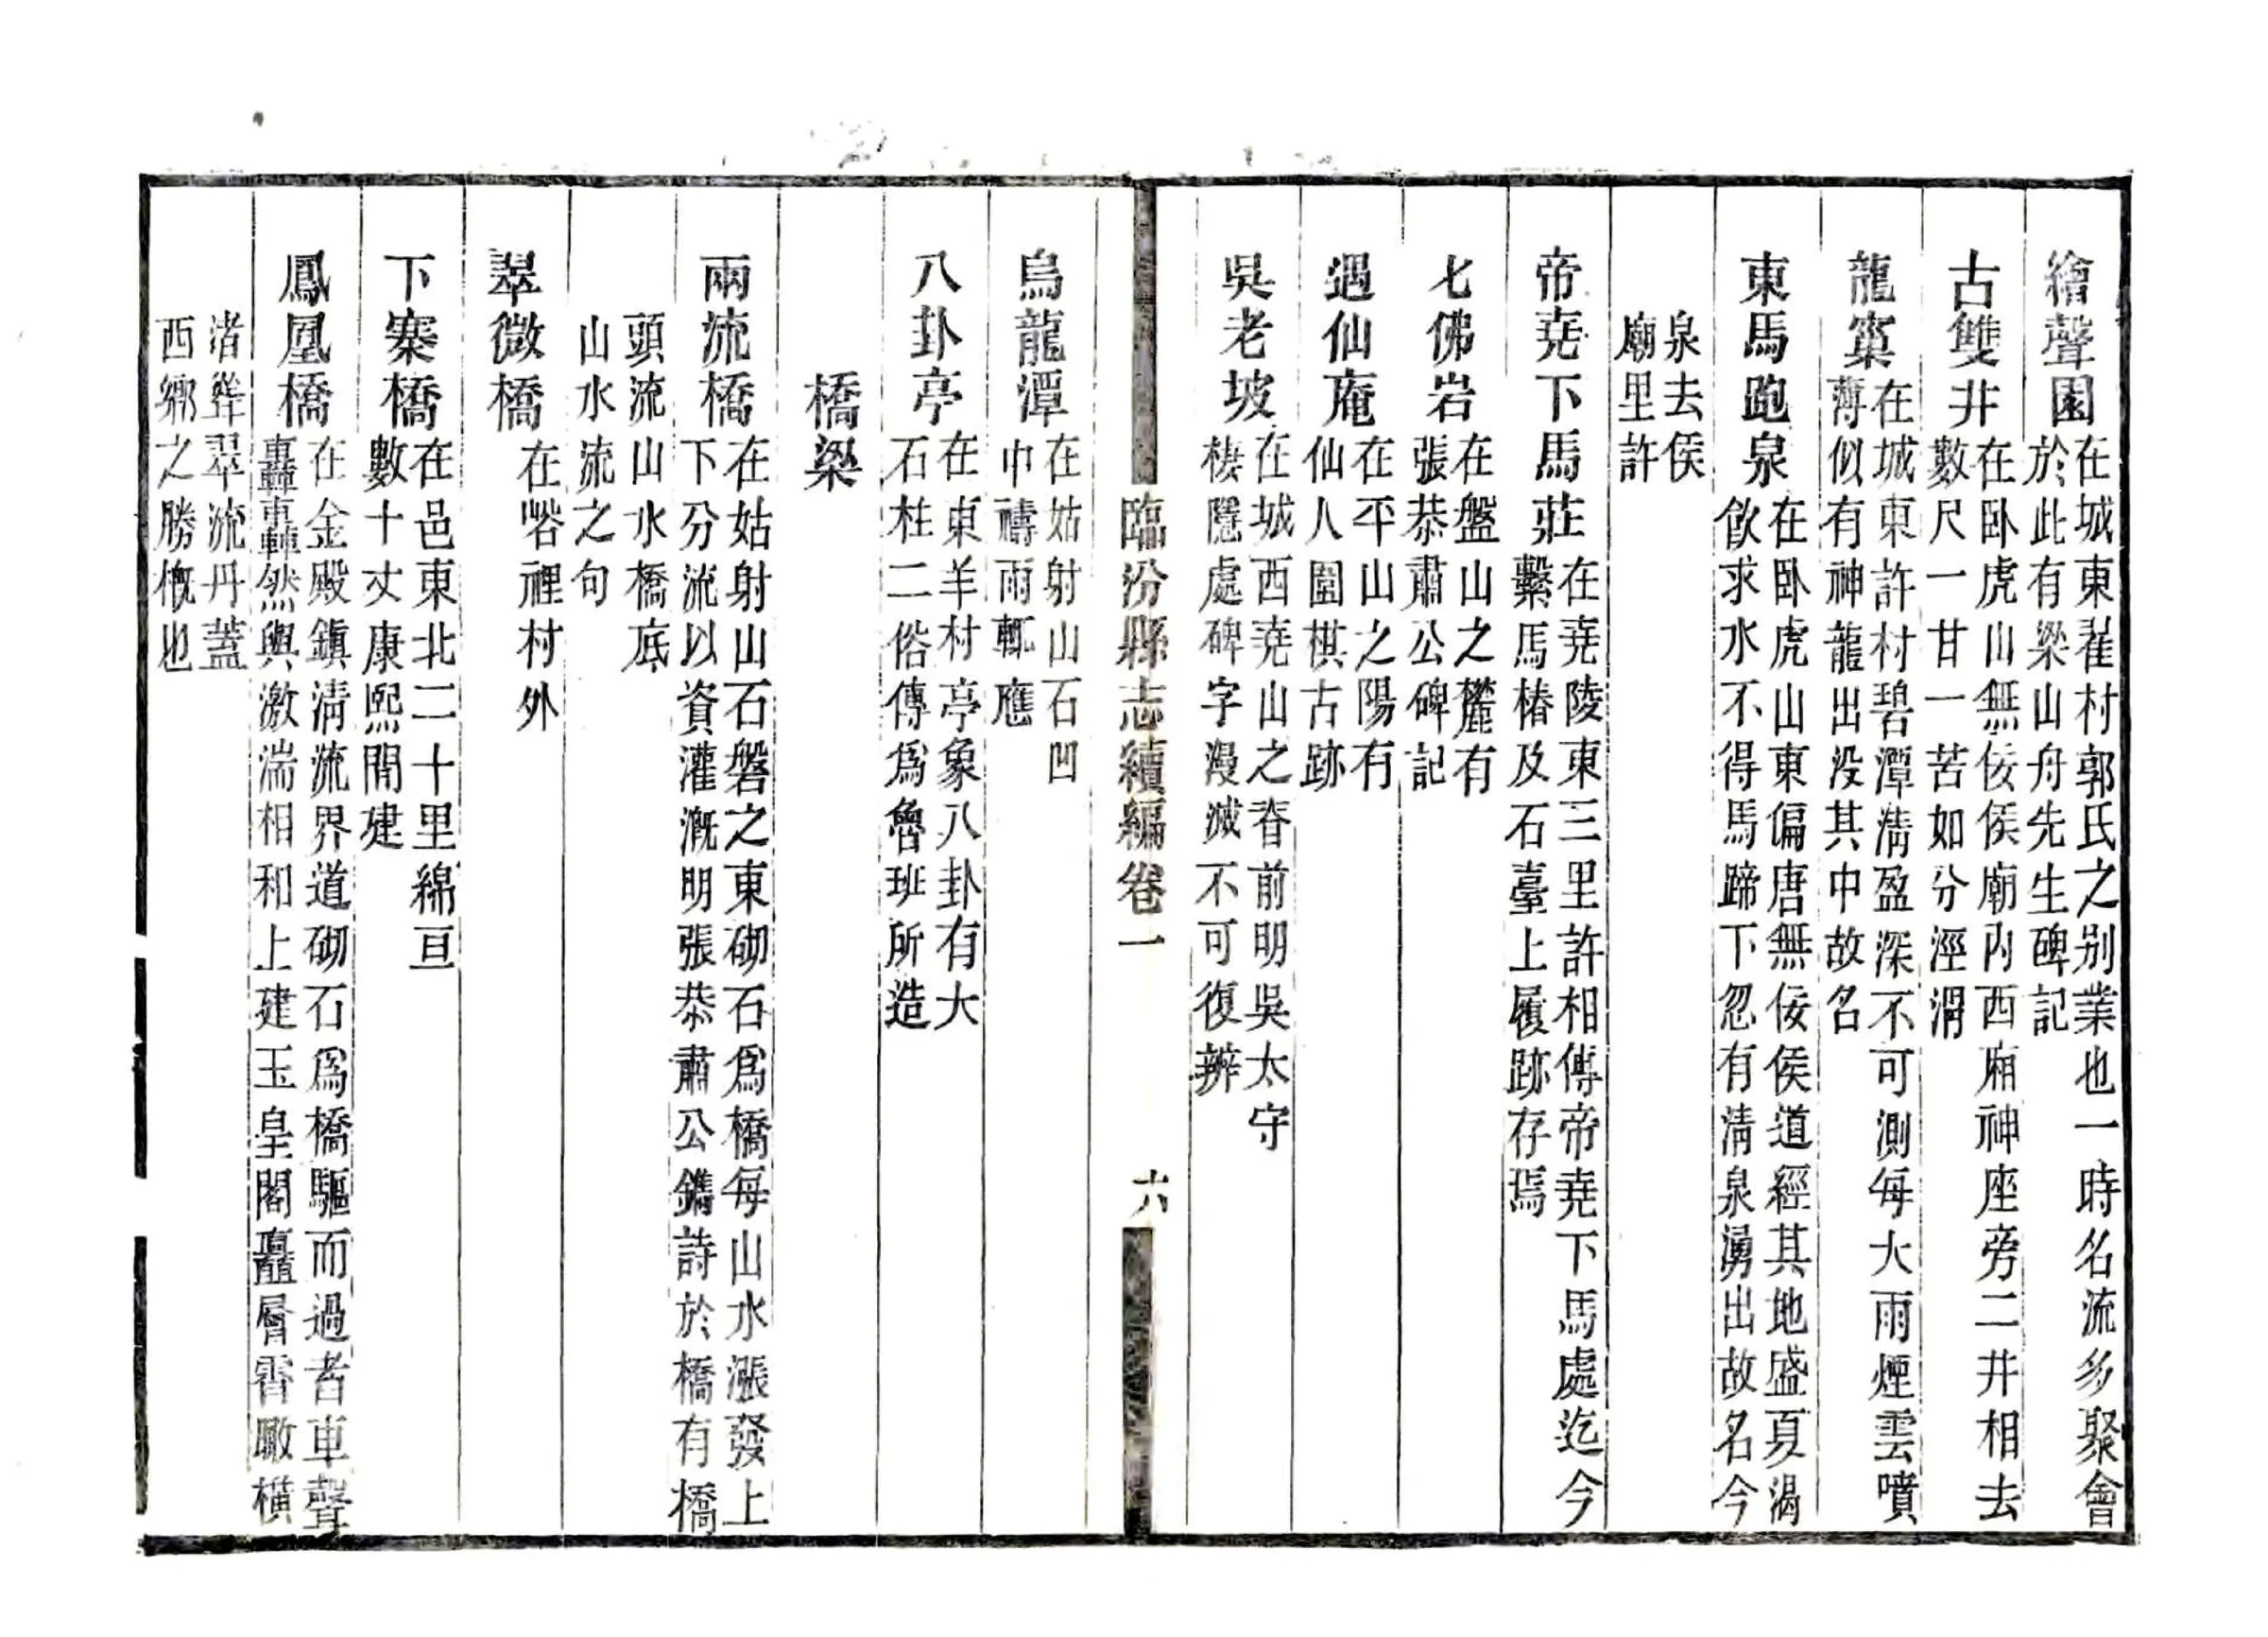 繪聲園在城東翟村郭氏之别業也一時名流多聚會
於此有梁山舟先生碑記
古雙井在卧虎山無佞侯廟内西廂神座旁二井相去
數尺一甘一苦如分涇渭
龍窠在城東許村碧潭淸盈深不可測每大雨煙雲噴
薄似有神龍出没其中故名
東馬跑泉在卧虎山東偏唐無佞侯道經其地盛夏渴
飲求水不得馬蹄下忽有淸泉湧出故名今
泉去侯
廟里許
帝堯下馬莊在堯陵東三里許相傳帝堯下馬處迄今
繫馬樁及石臺上履跡存焉
七佛岩在盤山之麓有
張恭肅公碑記
遇仙庵在平山之陽有
仙人圍棋古跡
吳老坡在城西堯山之脊前明吳太守
棲隱處碑字漫滅不可復辨
臨汾縣志續編卷一
六
烏龍潭在姑射山石凹
中禱雨輒應
八卦亭在東羊村亭象八卦有大
石柱二俗傳爲魯班所造
橋梁
兩流橋在姑射山石磐之東砌石爲橋每山水漲發上
下分流以資灌漑明張恭肅公鐫詩於橋有橋
頭流山水橋底
山水流之句
翠微橋在峪裡村外
下寨橋在邑東北二十里綿亘
數十丈康熙閒建
鳳凰橋在金殿鎭淸流界道砌石爲橋驅而過者車聲
轟轟然與激湍相和上建玉皇閣矗層霄瞰橫
渚聳翠流丹蓋
西鄉之勝概也